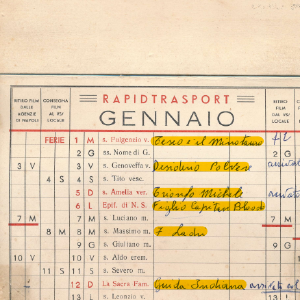 RAPIDTRASPORT
GENNAIO
RITIRO FILM DALLE AGENZIE DI NAPOLI
CONSEGNA FILM AL RIV LOCALE
FERIE 1 M s. Fulgenzio v. Teseo e il Minotauro
2 G ss. Nome di G.
3 V 3 V s. Genoveffa v. Desiderio
4 S 4 S s. Tito vesc.
5 D s. Amelia ver. Trionfo Michele
6 L Epif. di N. S. Figlio Capitan Blood
7 M 7 M s. Luciano m. 7 M
8 M 8 M s. Massimo m. 7 Ladri
9 G s. Giuliano m. 9 G
10 V 10 V s. Aldo erem. 10 V
11 S 11 S s. Severo m.
12 D La Sacra Fam. Guida Indiana
13 L s. Leonzio v.